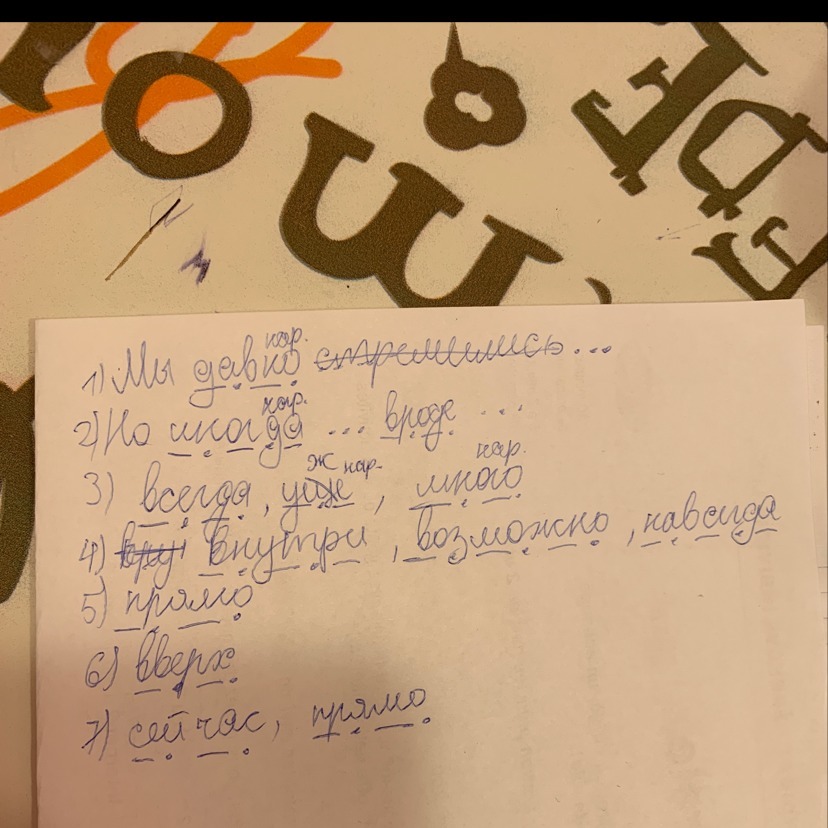 нар.
1) Мы давно стремились...
нар.
2) Но иногда ... вроде ...
ж нар. нар.
3) всегда, уже, много
4) внутри, возможно, навсегда
5) прямо
6) вверх
7) сейчас, прямо